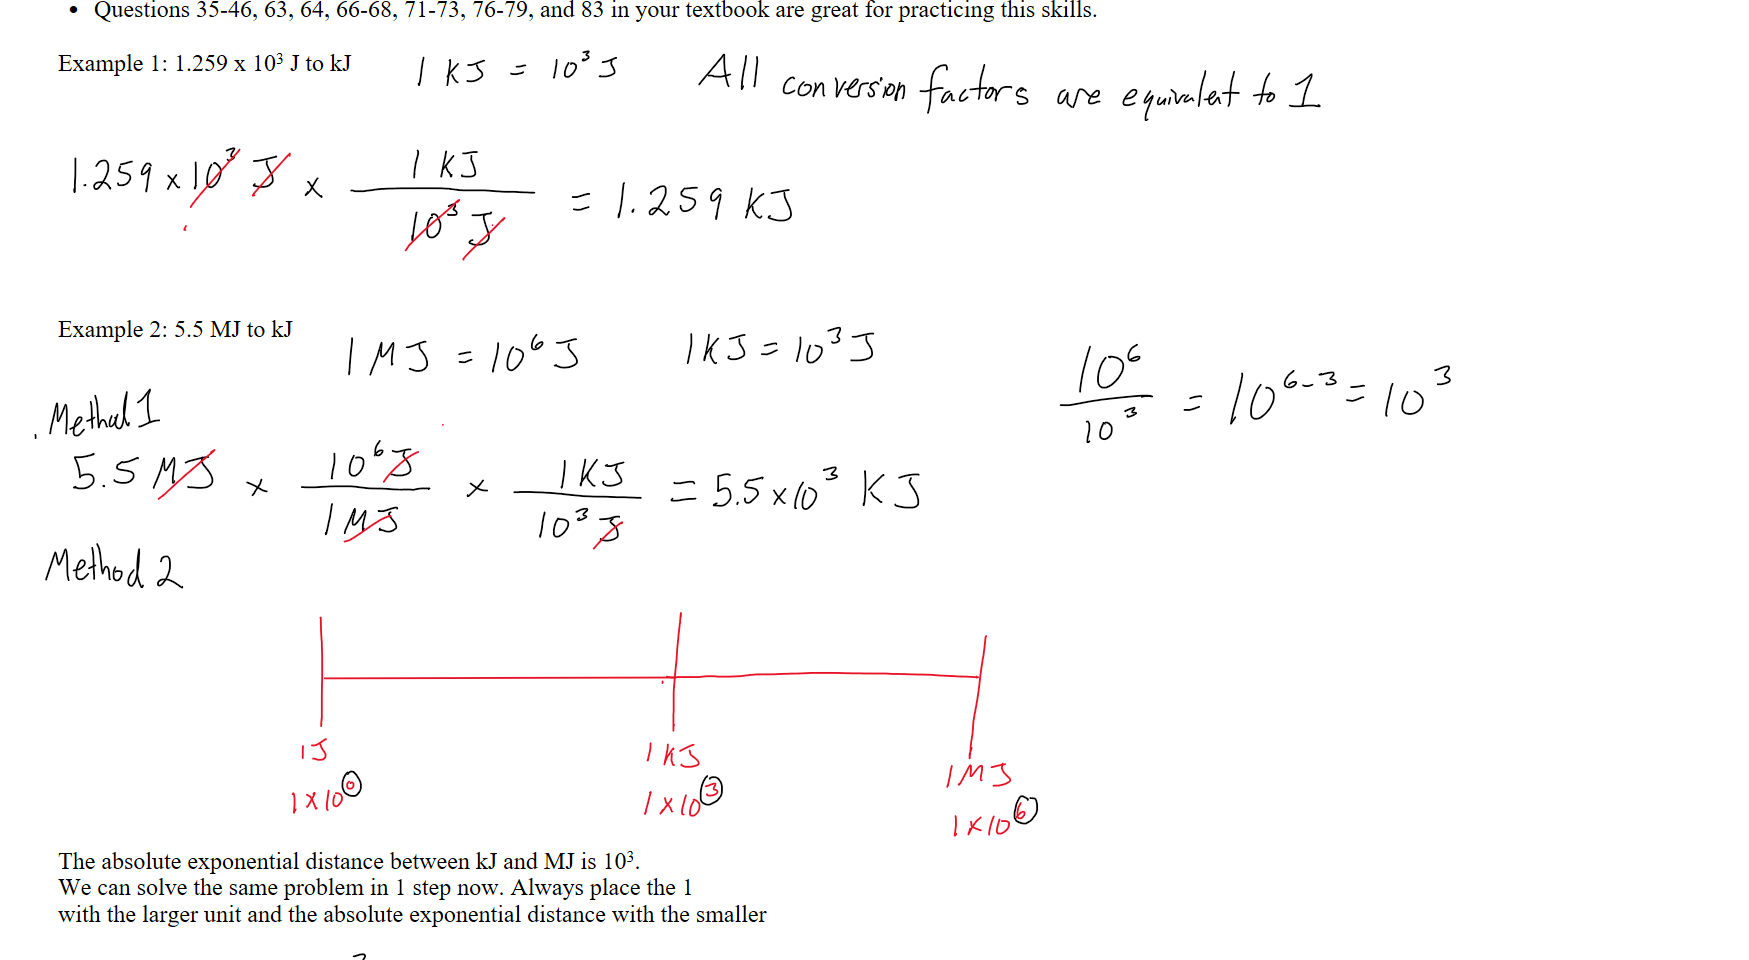 • Questions 35-46, 63, 64, 66-68, 71-73, 76-79, and 83 in your textbook are great for practicing this skills.
Example 1: 1.259 x 10³ J to kJ
1 KJ = 10³ J
All conversion factors are equivalent to 1
1.259 x 10³ J x 1 KJ / 10³ J = 1.259 KJ
Example 2: 5.5 MJ to kJ
1 MJ = 10⁶ J
1 KJ = 10³ J
10⁶ / 10³ = 10⁶⁻³ = 10³
Method 1
5.5 MJ x 10⁶ J / 1 MJ x 1 KJ / 10³ J = 5.5 x 10³ KJ
Method 2
1J
1 x 10⁰
1 KJ
1 x 10³
1 MJ
1 x 10⁶
The absolute exponential distance between kJ and MJ is 10³.
We can solve the same problem in 1 step now. Always place the 1
with the larger unit and the absolute exponential distance with the smaller